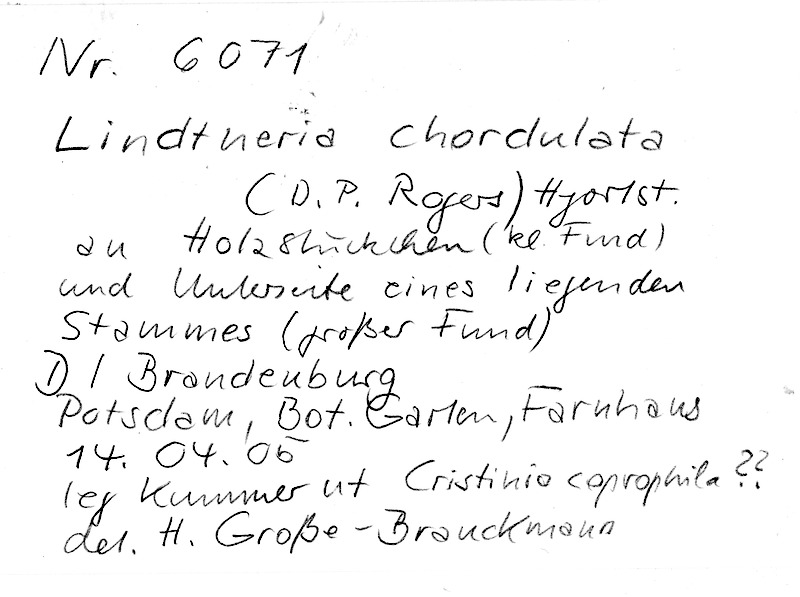 Nr. 6071
Lindtneria chordulata
(D.P. Rogers) Hjortst.
an Holzstückchen (kl. Fund)
und Unterseite eines liegenden
Stammes (großer Fund)
D / Brandenburg
Potsdam, Bot. Garten, Farnhaus
14. 04. 05
leg Kummer ut Cristinia coprophila ??
det. H. Große-Brauckmann